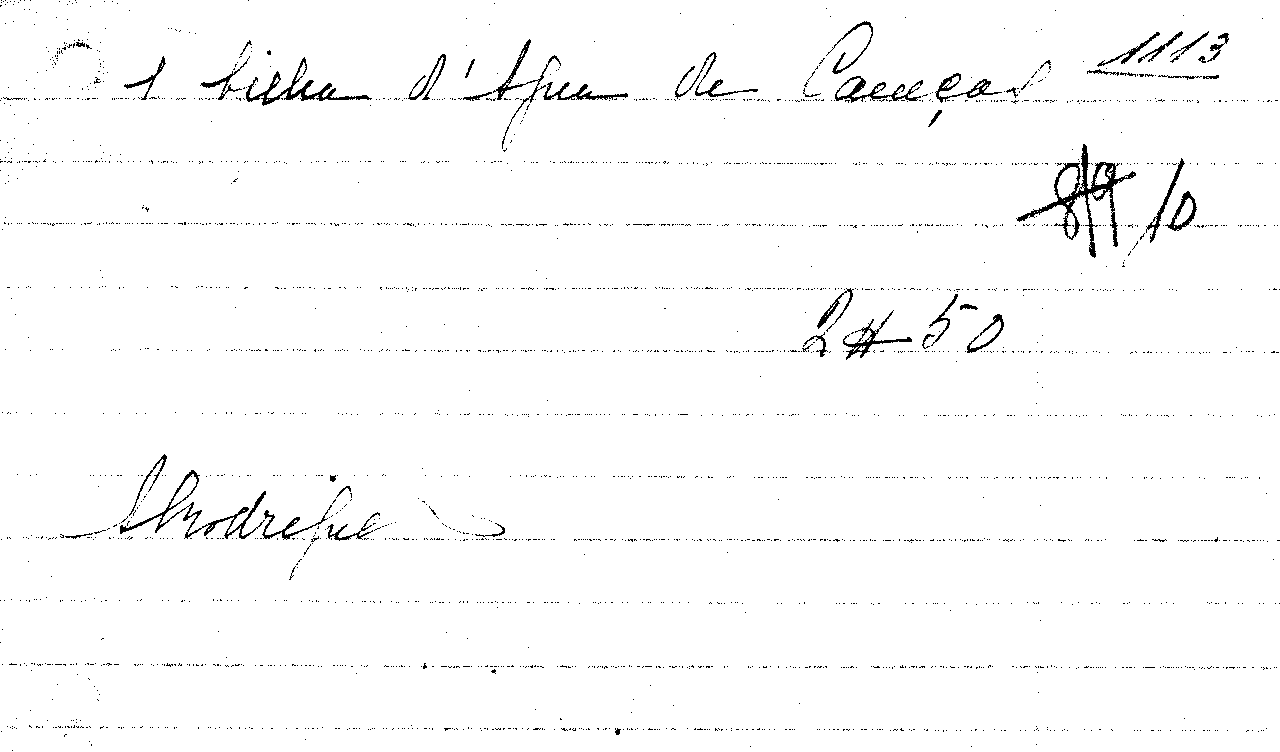 1 bilha d'Agua de Caneças 1113
8/9/10
2$50
ARodrigue